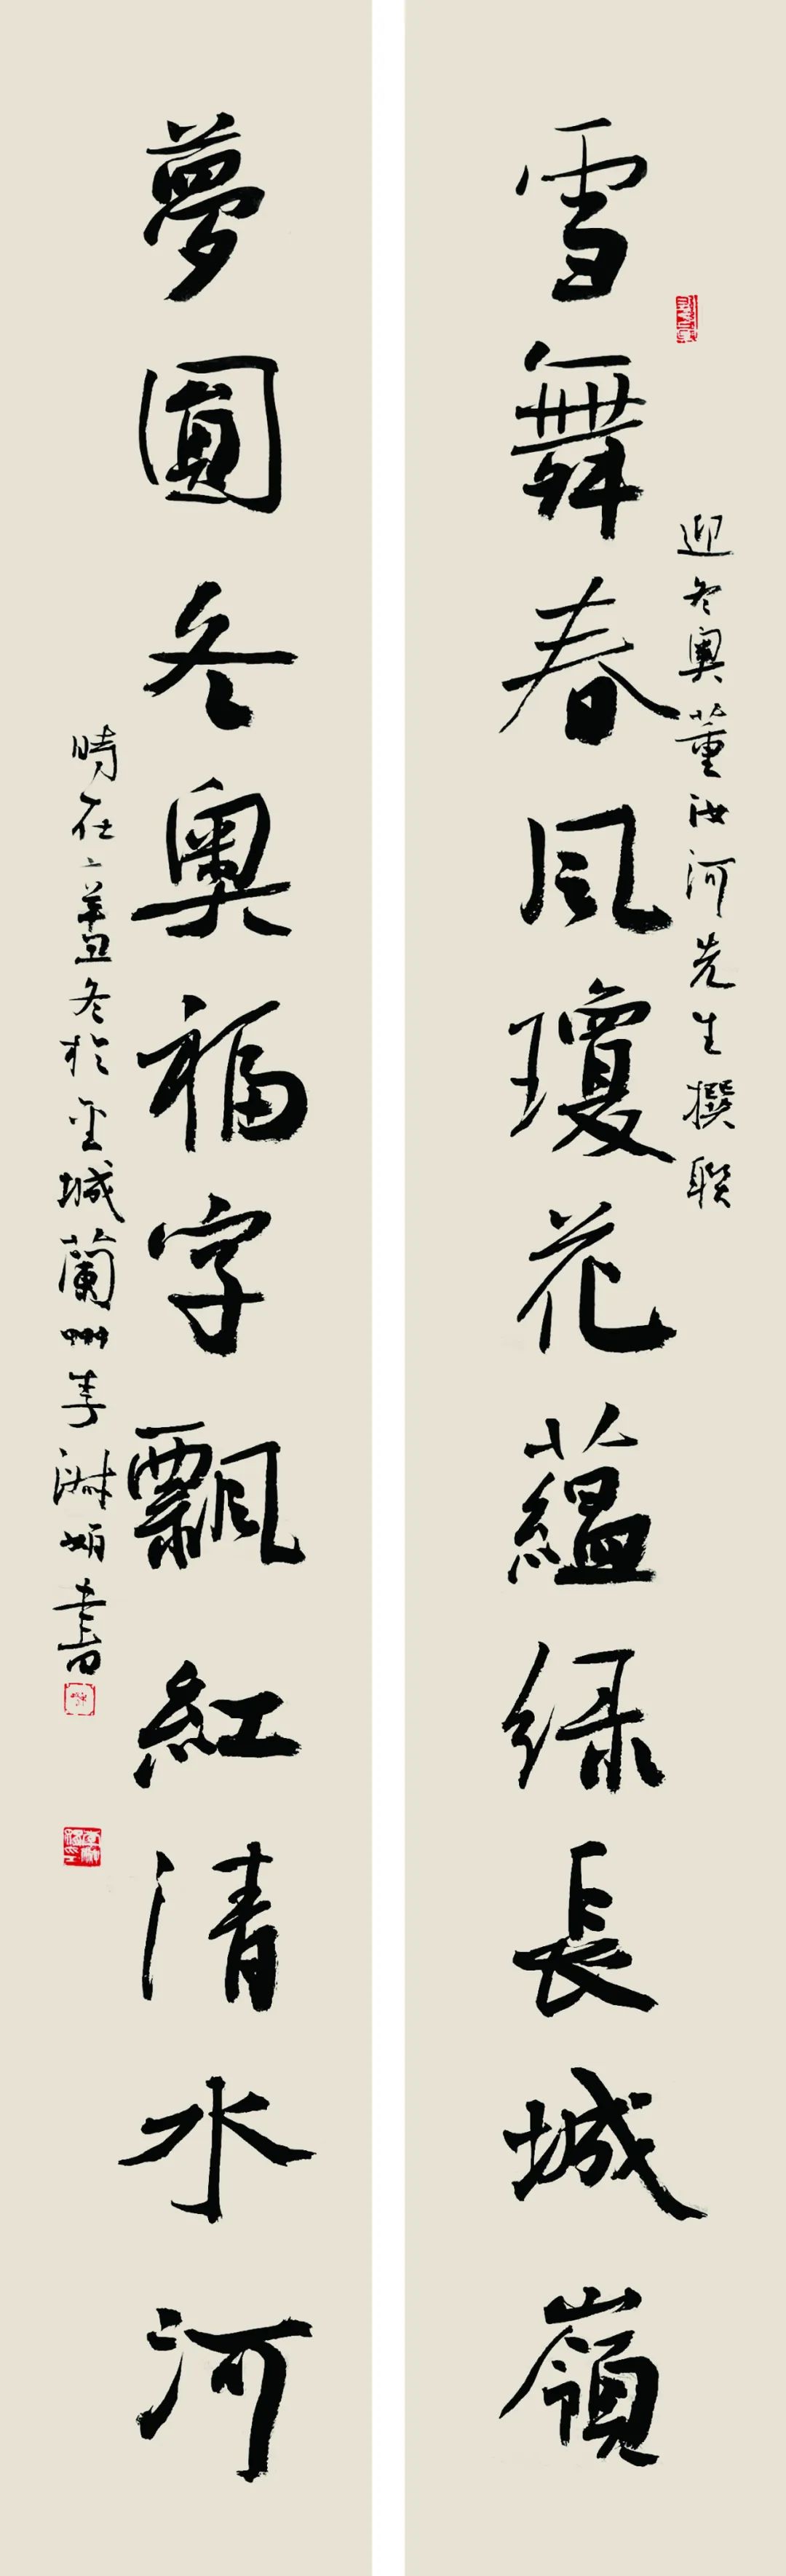 迎冬奥董汝河先生撰聯
雪舞春风瓊花蘊绿長城嶺
夢圓冬奧福字飄紅清水河
時在辛丑冬於金城蘭州李淑娟書